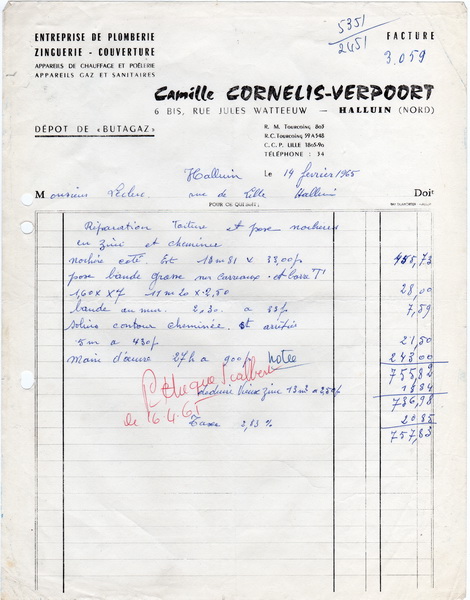 ENTREPRISE DE PLOMBERIE
ZINGUERIE - COUVERTURE
APPAREILS DE CHAUFFAGE ET POÊLERIE
APPAREILS GAZ ET SANITAIRES
5351
2451
FACTURE
3.059
Camille CORNELIS-VERPOORT
6 BIS, RUE JULES WATTEEUW — HALLUIN (NORD)
DÉPOT DE «BUTAGAZ»
R. M. Tourcoing 803
R.C. Tourcoing 59 A 548
C. C. P. LILLE 1805-90
TÉLÉPHONE : 34
Halluin Le 14 février 1965
Monsieur Leclerc rue de Lille Halluin Doit
POUR CE QUI SUIT :
Réparation Toiture et pose nochères
en zinc et cheminée
nochère coté Est 13m81 x 33,00f 455,73
pose bande grasse sur carreaux et
1,60 x x7 11m20 x 2,50 28,00
bande au mur. 2m30. a 33f 7,59
solins contour cheminée et
5m a 430f 21,50
Main d'œuvre 27h a 900f notée 243,00
755,82
déduire vieux zinc 13m3 a 250f 18,84
736,98
Taxe 2,83 % 20,85
757,83
chèque
de 16.4.65